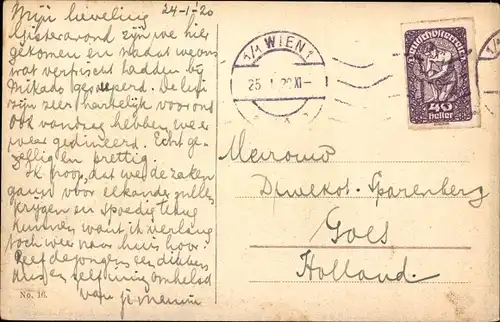 24-1-20
Mijn lieveling
Gisteravond zijn we hier
gekomen en nadat we ons
wat verfrischt hadden bij
Mikado gesoupeerd. De
zijn zeer hartelijk voor ons
Ook vandag hebben we er
weer gedineerd. Echt ge-
zellig en prettig.
Ik hoop dat we de zaken
gauw voor elkander zullen
krijgen en spoedig terug
kunnen want ik verlang
toch weer naar huis hoor.
Geef de jongens een dikken
kus en zelf innig omhelsd
van je
No. 16.
1/1 WIEN 1
25. I. 20 XI
Deutschösterreich
40
Heller
Mevrouw
Sparenberg
Goes
Holland.